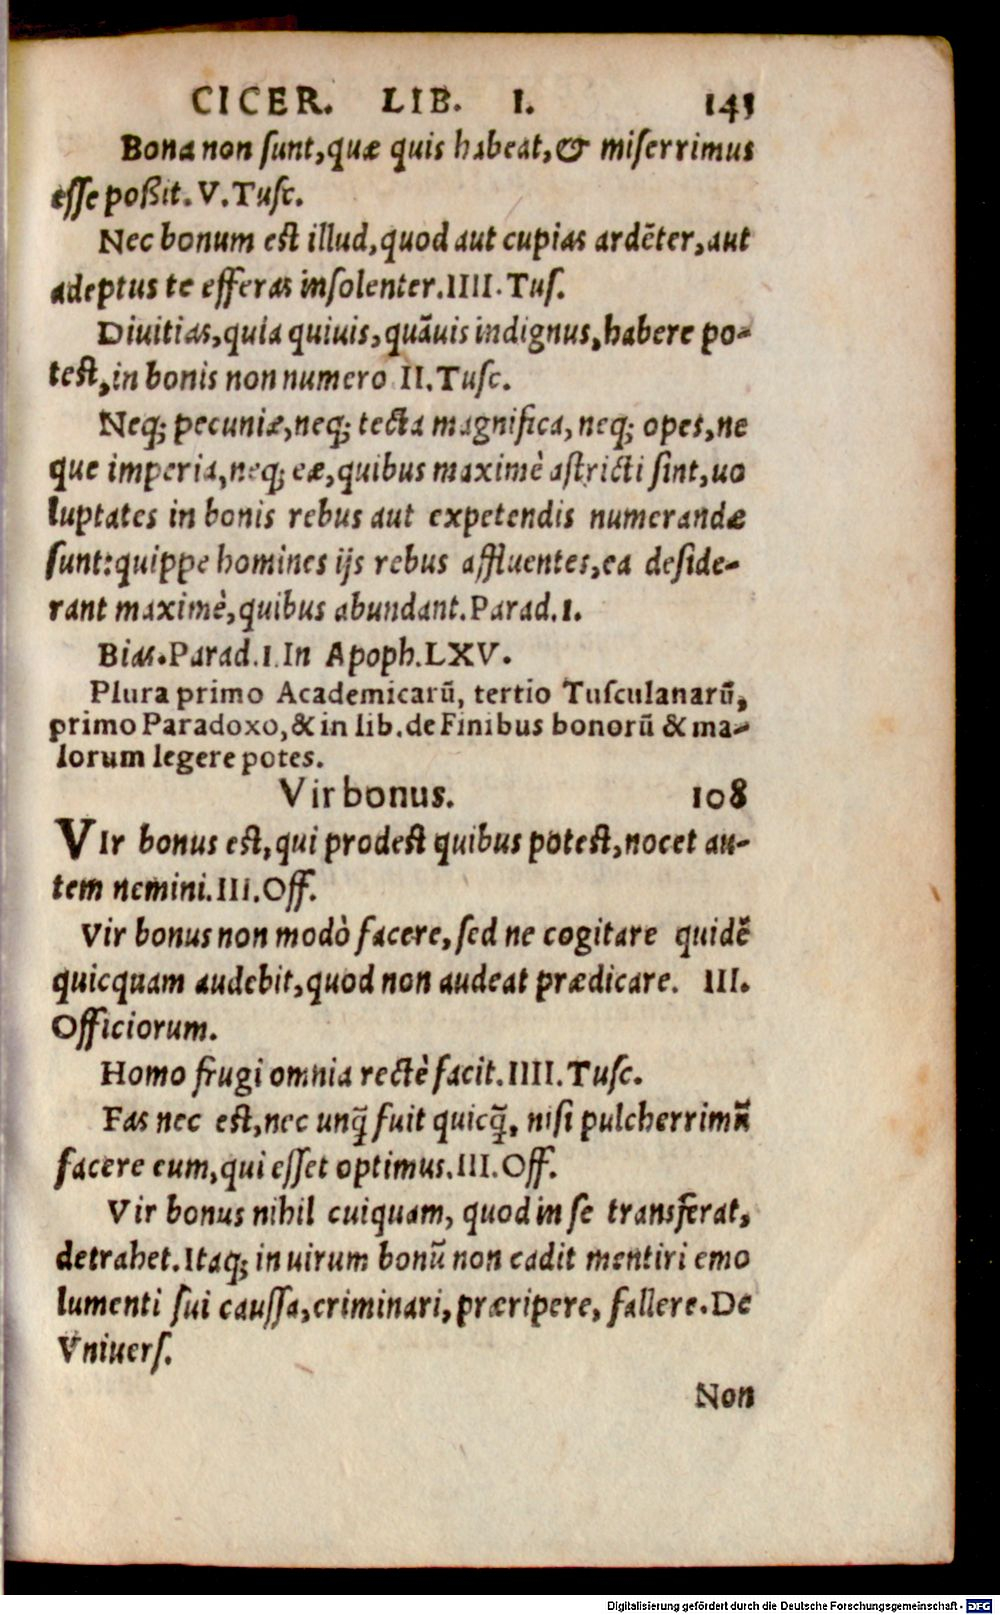 CICER. LIB. I. 145
Bona non ſunt, quæ quis habeat, & miſerrimus
eſſe poßit. V. Tuſc.
Nec bonum eſt illud, quod aut cupias ardẽter, aut
adeptus te efferas inſolenter. IIII. Tuſ.
Diuitias, quia quiuis, quãuis indignus, habere po-
teſt, in bonis non numero II. Tuſc.
Neq; pecuniæ, neq; tecta magnifica, neq; opes, ne
que imperia, neq; eæ, quibus maximè aſtricti ſint, uo
luptates in bonis rebus aut expetendis numerandæ
ſunt: quippe homines ijs rebus affluentes, ea deſide-
rant maximè, quibus abundant. Parad. I.
Bias. Parad. I. In Apoph. LXV.
Plura primo Academicarũ, tertio Tuſculanarũ,
primo Paradoxo, & in lib. de Finibus bonorũ & ma-
lorum legere potes.
Vir bonus. 108
VIr bonus eſt, qui prodeſt quibus poteſt, nocet au-
tem nemini. III. Off.
Vir bonus non modò facere, ſed ne cogitare quidẽ
quicquam audebit, quod non audeat prædicare. III.
Officiorum.
Homo frugi omnia rectè facit. IIII. Tuſc.
Fas nec eſt, nec unq̃ fuit quicq̃, niſi pulcherrimũ
facere eum, qui eſſet optimus. III. Off.
Vir bonus nihil cuiquam, quod in ſe transferat,
detrahet. Itaq; in uirum bonũ non cadit mentiri emo
lumenti ſui cauſſa, criminari, præripere, fallere. De
Vniuerſ.
Non
Digitalisierung gefördert durch die Deutsche Forschungsgemeinschaft - DFG